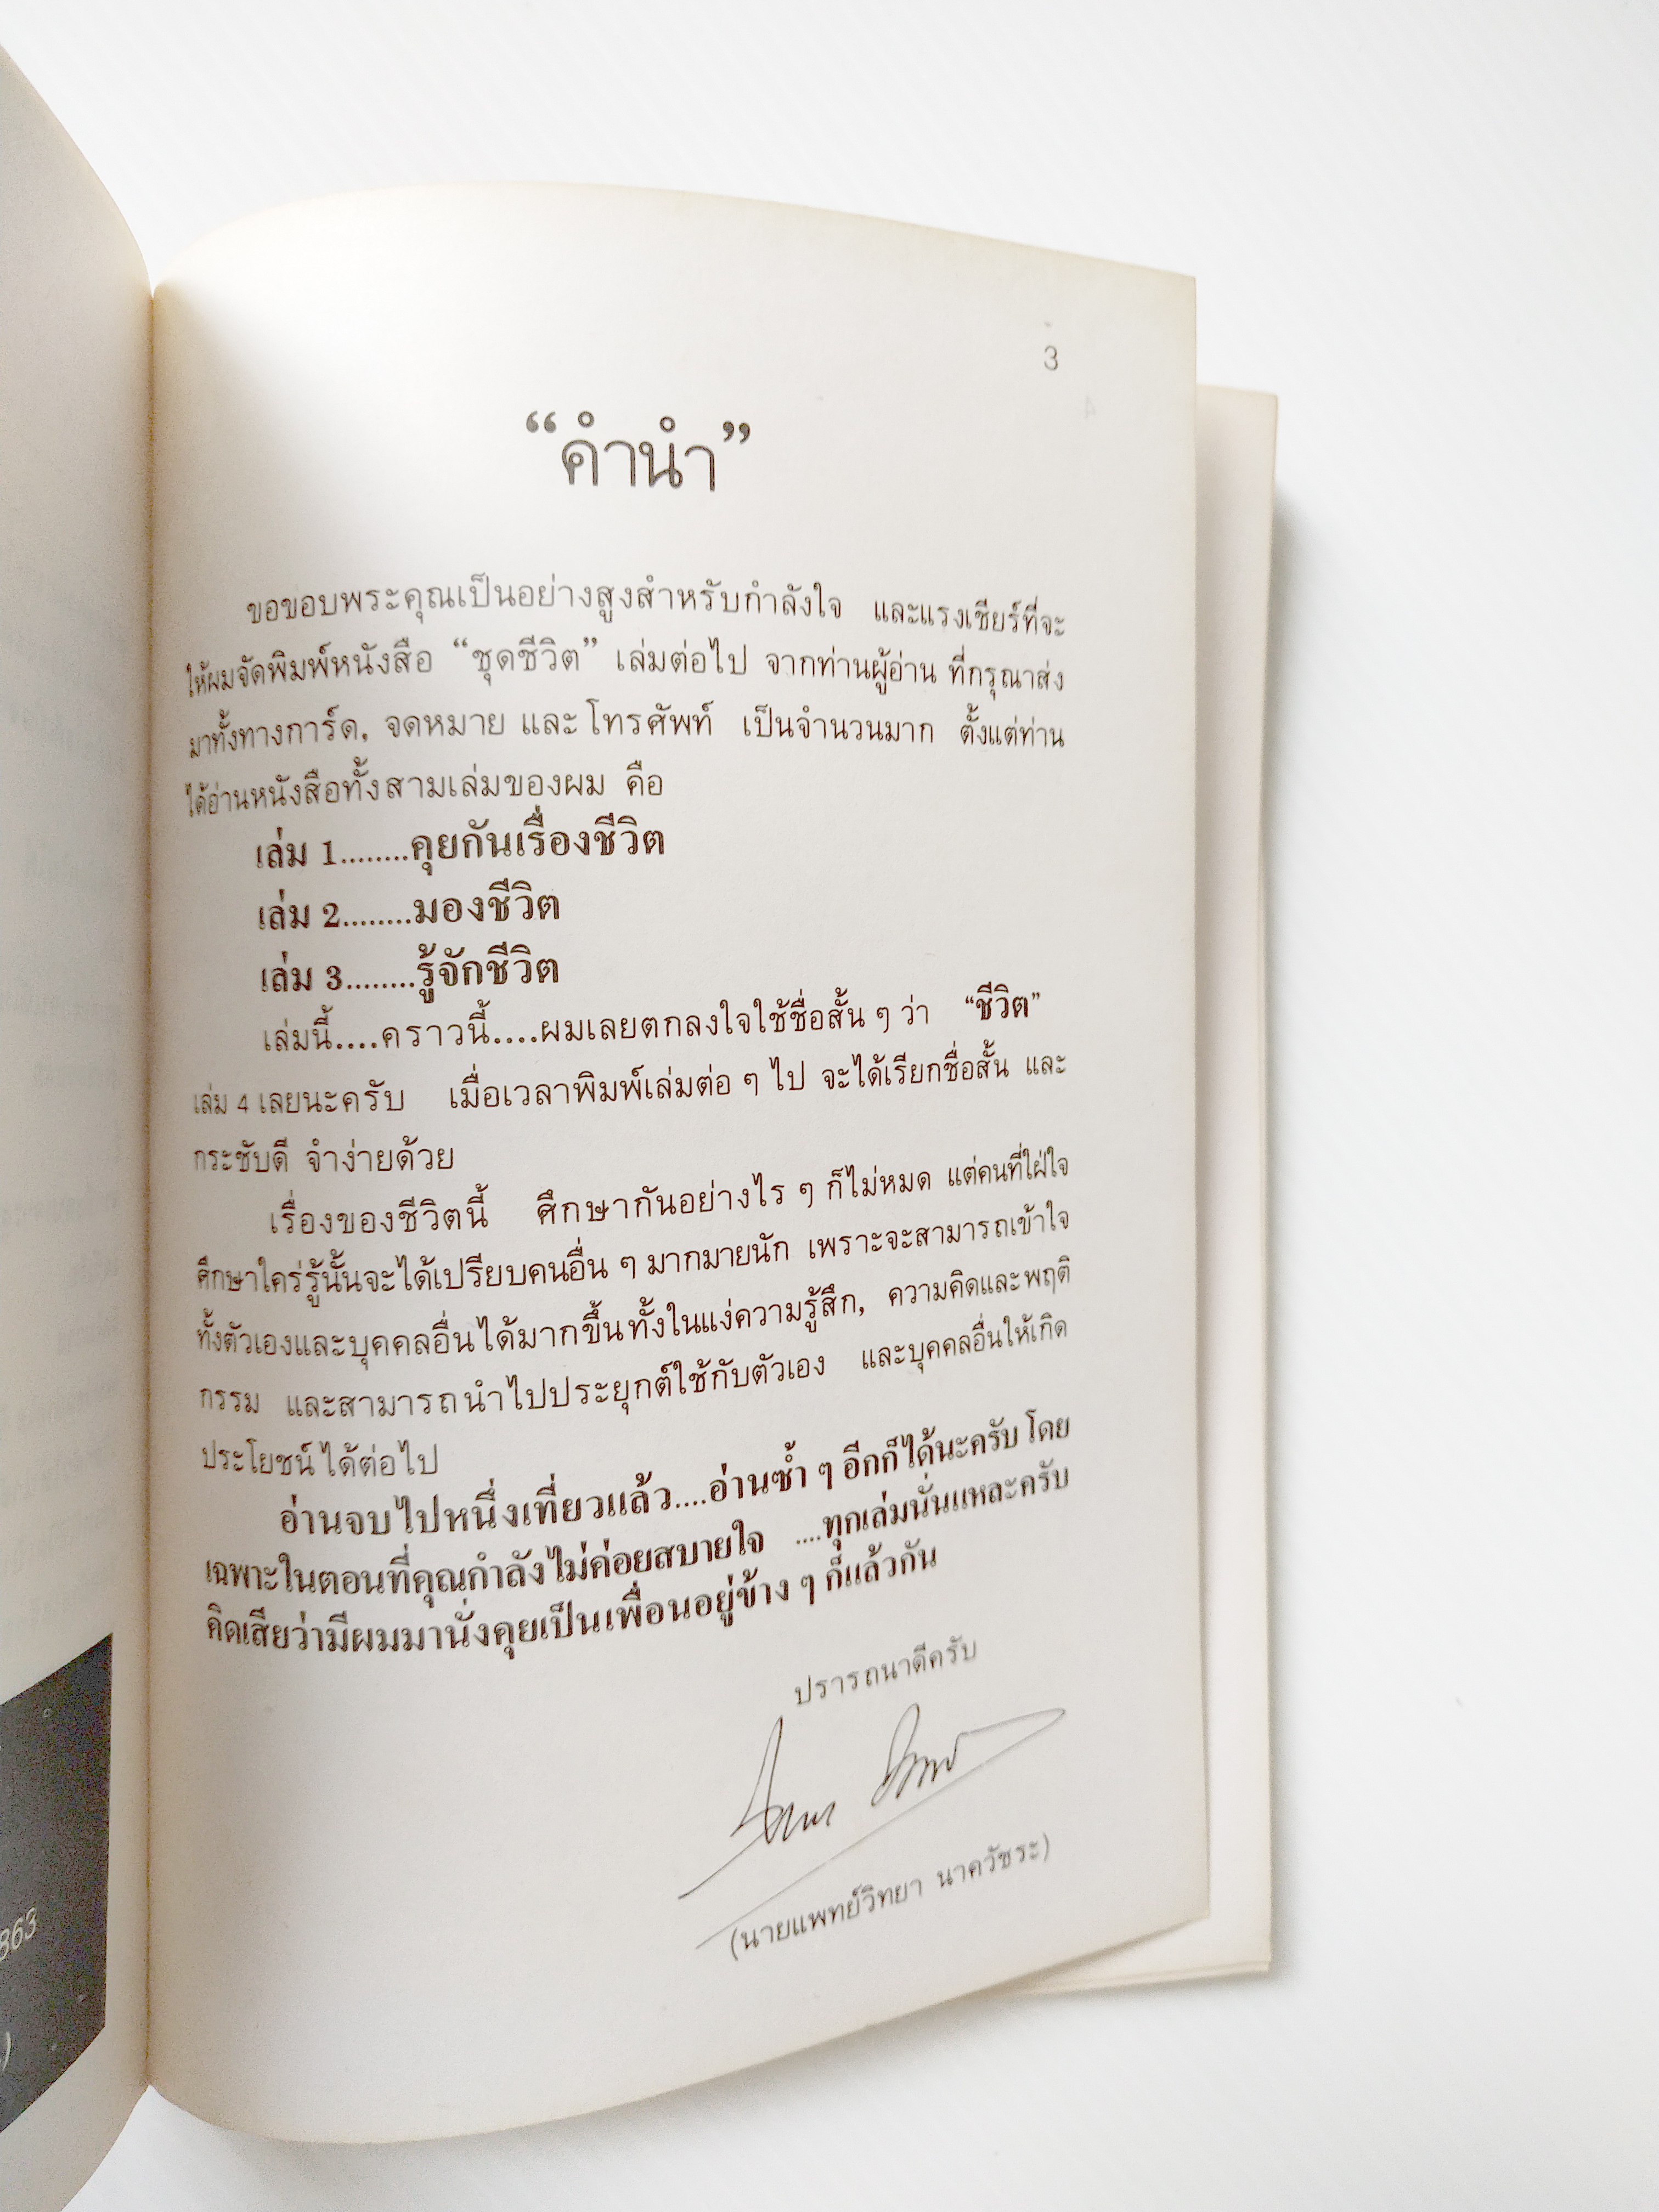 3
“คำนำ”
ขอขอบพระคุณเป็นอย่างสูงสำหรับกำลังใจ และแรงเชียร์ที่จะ
ให้ผมจัดพิมพ์หนังสือ “ชุดชีวิต” เล่มต่อไป จากท่านผู้อ่าน ที่กรุณาส่ง
มาทั้งทางการ์ด, จดหมาย และโทรศัพท์ เป็นจำนวนมาก ตั้งแต่ท่าน
ได้อ่านหนังสือทั้งสามเล่มของผม คือ
เล่ม 1........คุยกันเรื่องชีวิต
เล่ม 2........มองชีวิต
เล่ม 3........รู้จักชีวิต
เล่มนี้....คราวนี้....ผมเลยตกลงใจใช้ชื่อสั้น ๆ ว่า “ชีวิต”
เล่ม 4 เลยนะครับ เมื่อเวลาพิมพ์เล่มต่อ ๆ ไป จะได้เรียกชื่อสั้น และ
กระชับดี จำง่ายด้วย
เรื่องของชีวิตนี้ ศึกษากันอย่างไร ๆ ก็ไม่หมด แต่คนที่ใฝ่ใจ
ศึกษาใคร่รู้นั้นจะได้เปรียบคนอื่น ๆ มากมายนัก เพราะจะสามารถเข้าใจ
ทั้งตัวเองและบุคคลอื่นได้มากขึ้นทั้งในแง่ความรู้สึก, ความคิดและพฤติ
กรรม และสามารถนำไปประยุกต์ใช้กับตัวเอง และบุคคลอื่นให้เกิด
ประโยชน์ได้ต่อไป
อ่านจบไปหนึ่งเที่ยวแล้ว....อ่านซ้ำ ๆ อีกก็ได้นะครับ โดย
เฉพาะในตอนที่คุณกำลังไม่ค่อยสบายใจ ....ทุกเล่มนั่นแหละครับ
คิดเสียว่ามีผมมานั่งคุยเป็นเพื่อนอยู่ข้าง ๆ ก็แล้วกัน
ปรารถนาดีครับ
(นายแพทย์วิทยา นาควัชระ)
863
)